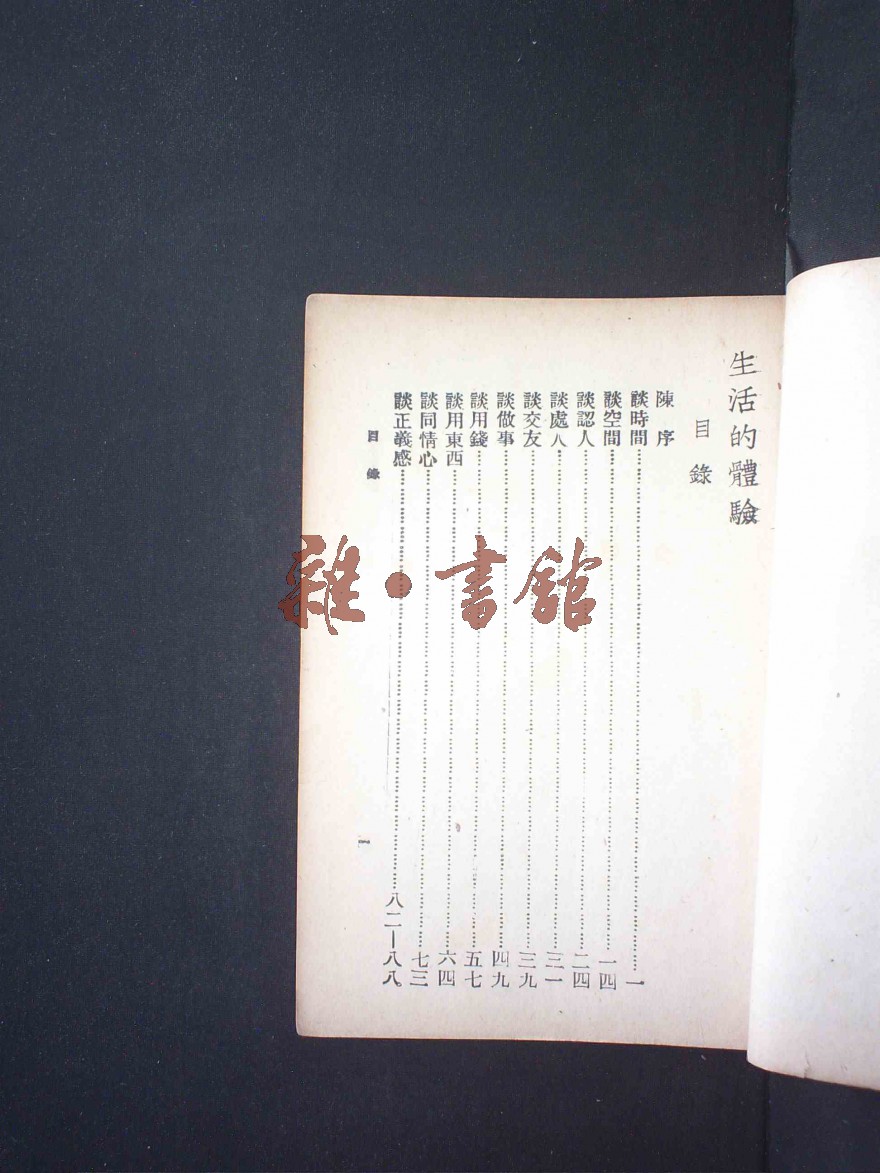 生活的體驗
目錄
陳序
談時間……一
談空間……一四
談認人……二四
談處人……三一
談交友……三九
談做事……四九
談用錢……五七
談用東西……六四
談同情心……七三
談正義感……八二—八八
目錄
一
雜·書館